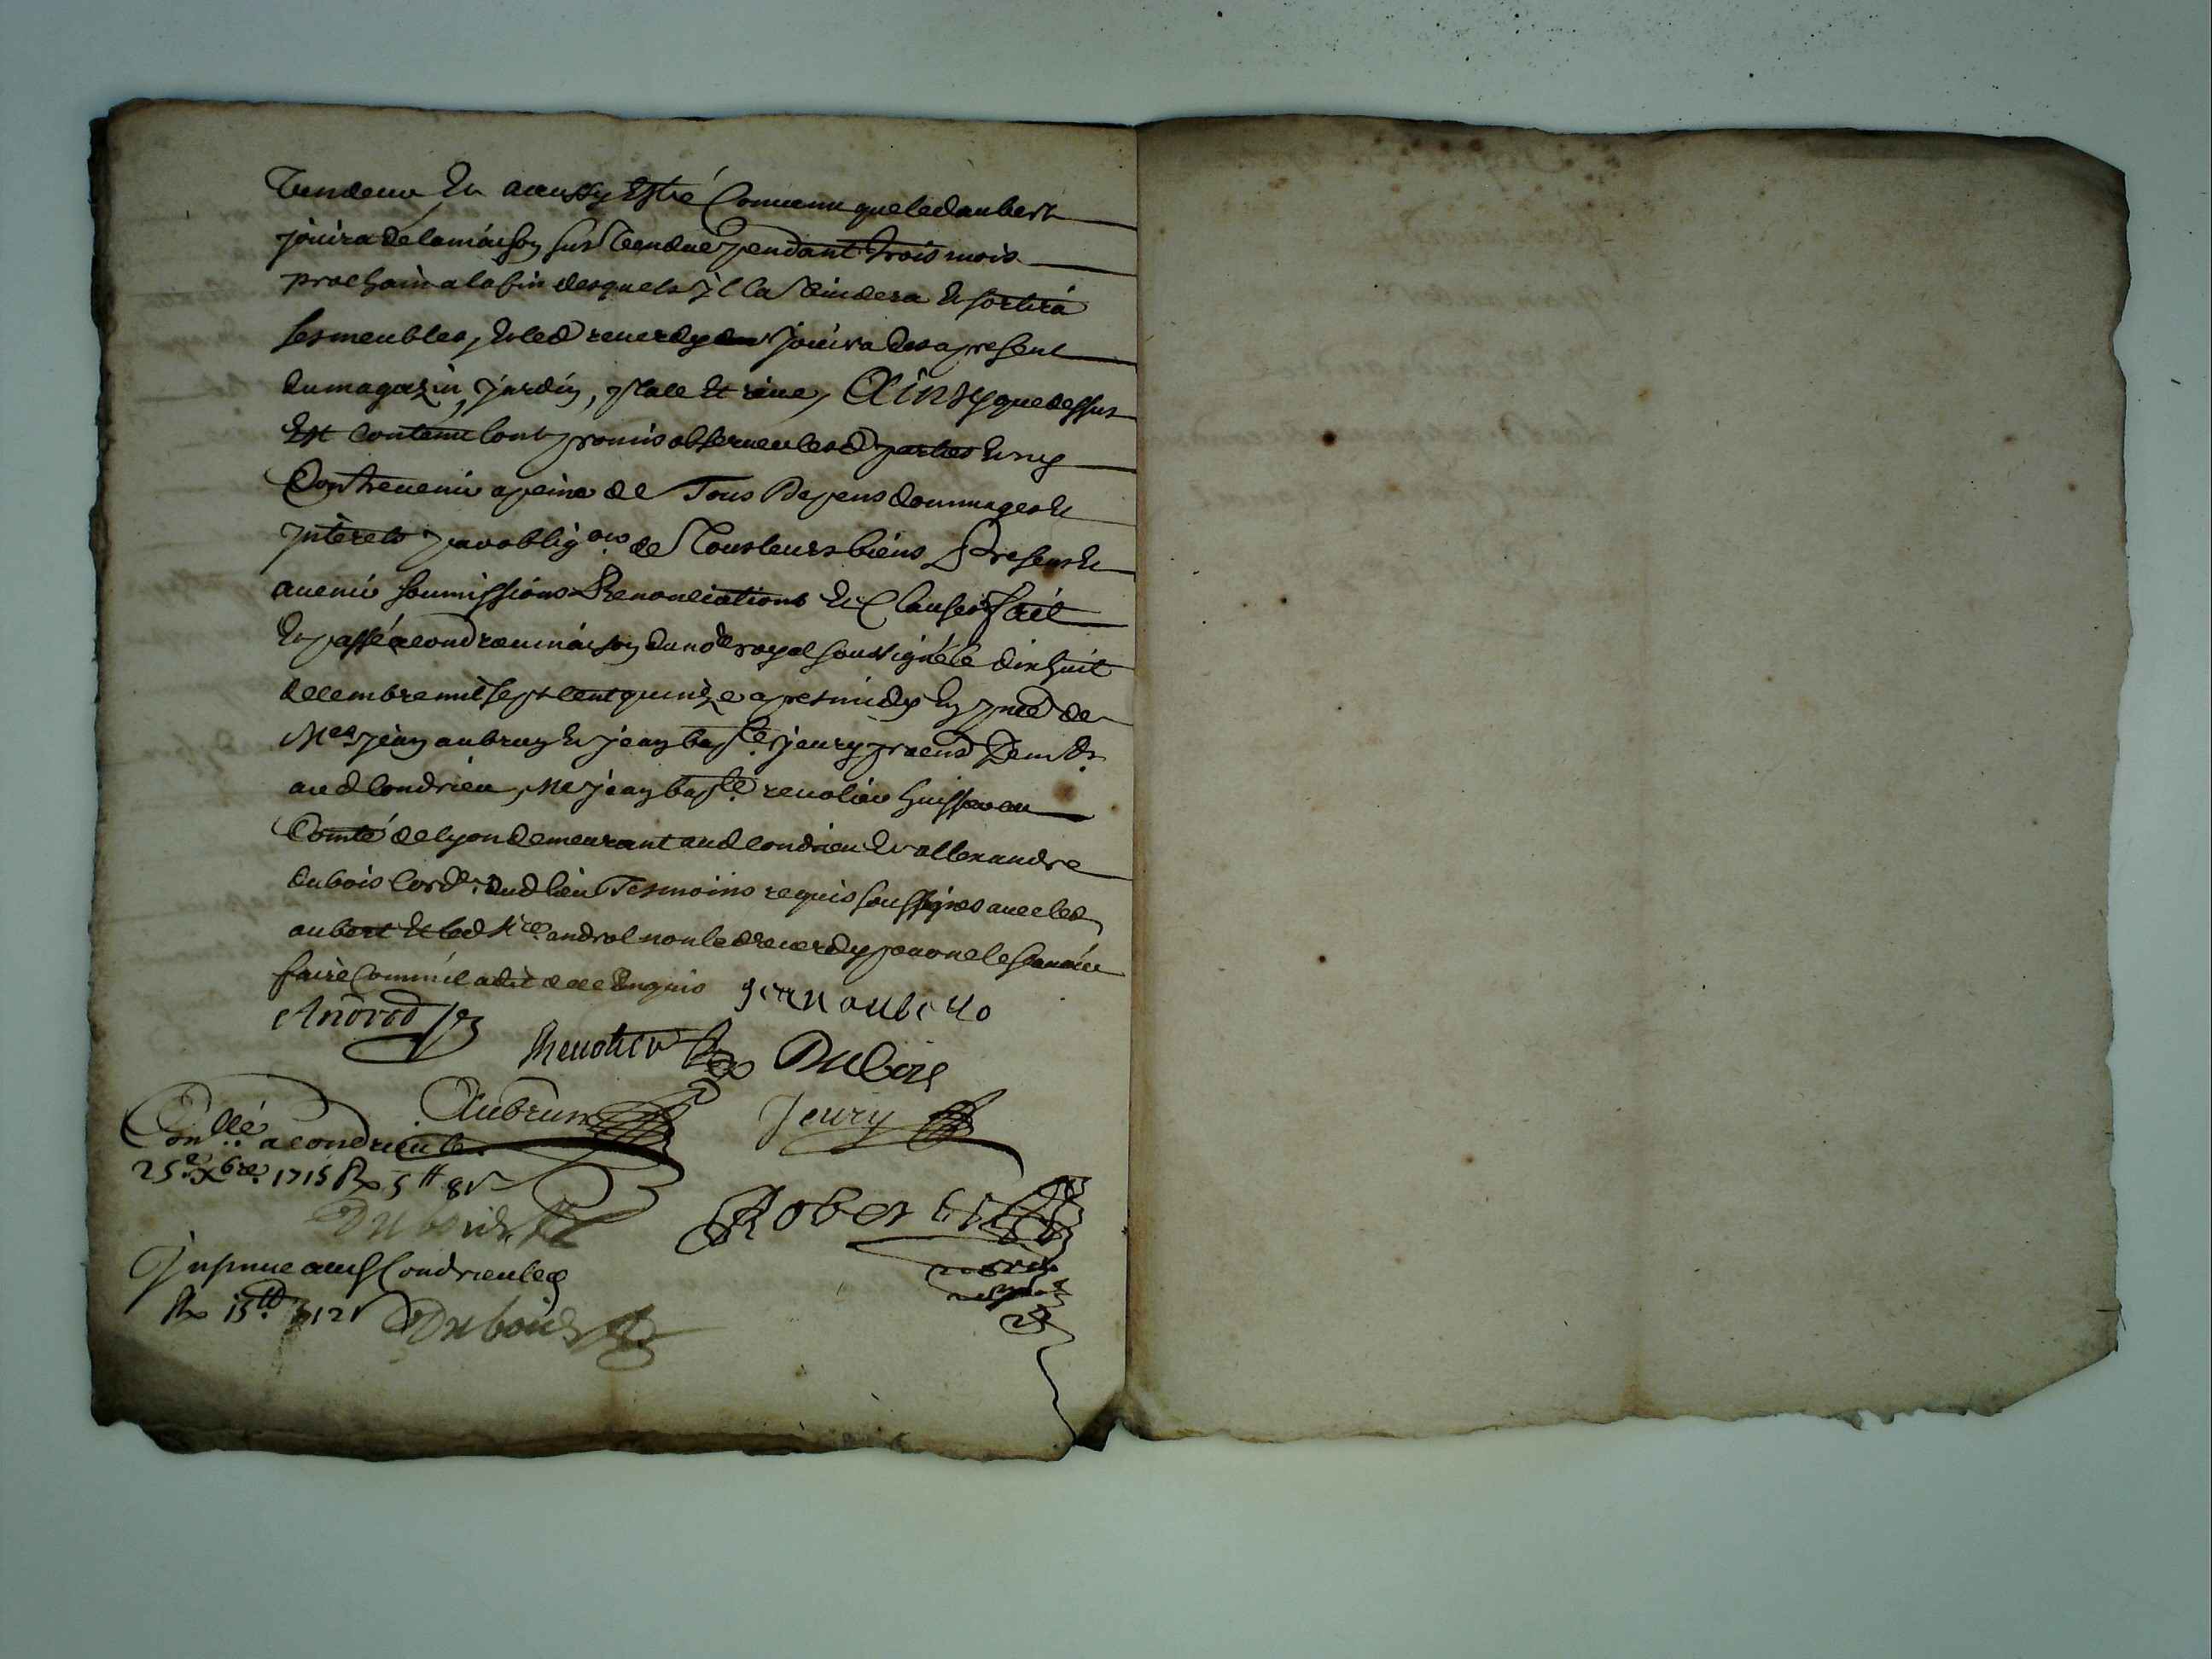 Vendeur Et aaussy Esté Convenu que led aubert
jouira de la maison sus vendue pendant trois mois
prochain a la fin desquels Il la vuidera Et sortira
ses meubles, Et led reverdy jouira des a present
du magazin, jardin, place Et rive, Ainsy que dessus
Est contenu l'ont promis observer lesd parties Et ny
Contrevenir a peine de Tous Depens dommages Et
Interets par oblig.on de Tous leurs biens Presens Et
avenir soumissions Renonciations Et Clauses fait
Et passé a condrieu maison du no.re royal soussigné le dixhuit
decembre mil sept cent quinze apres midy En p.nce de
M.es jean aubrun Et jean bap.te jeury pra.ens Dem.ts
aud Condrieu, Me jean bap.te revolier huissier au
Comté de lyon demeurant aud condrieu Et allexandre
dubois Cord.r dud lieu Tesmoins requis soussignés avec led
aubert Et led s.r androd non led reverdy pour ne le scavoir
faire Comme il a dit de ce Enquis jean aubert
Androd
Revolier Dubois
Aubrun Jeury
Con.llé a condrieu le
25.e xbre 1715 Rx 5 tt 8 s
Dubois Robert
Insinué aud Condrieu led
Rx 15 tt 12 s Dubois